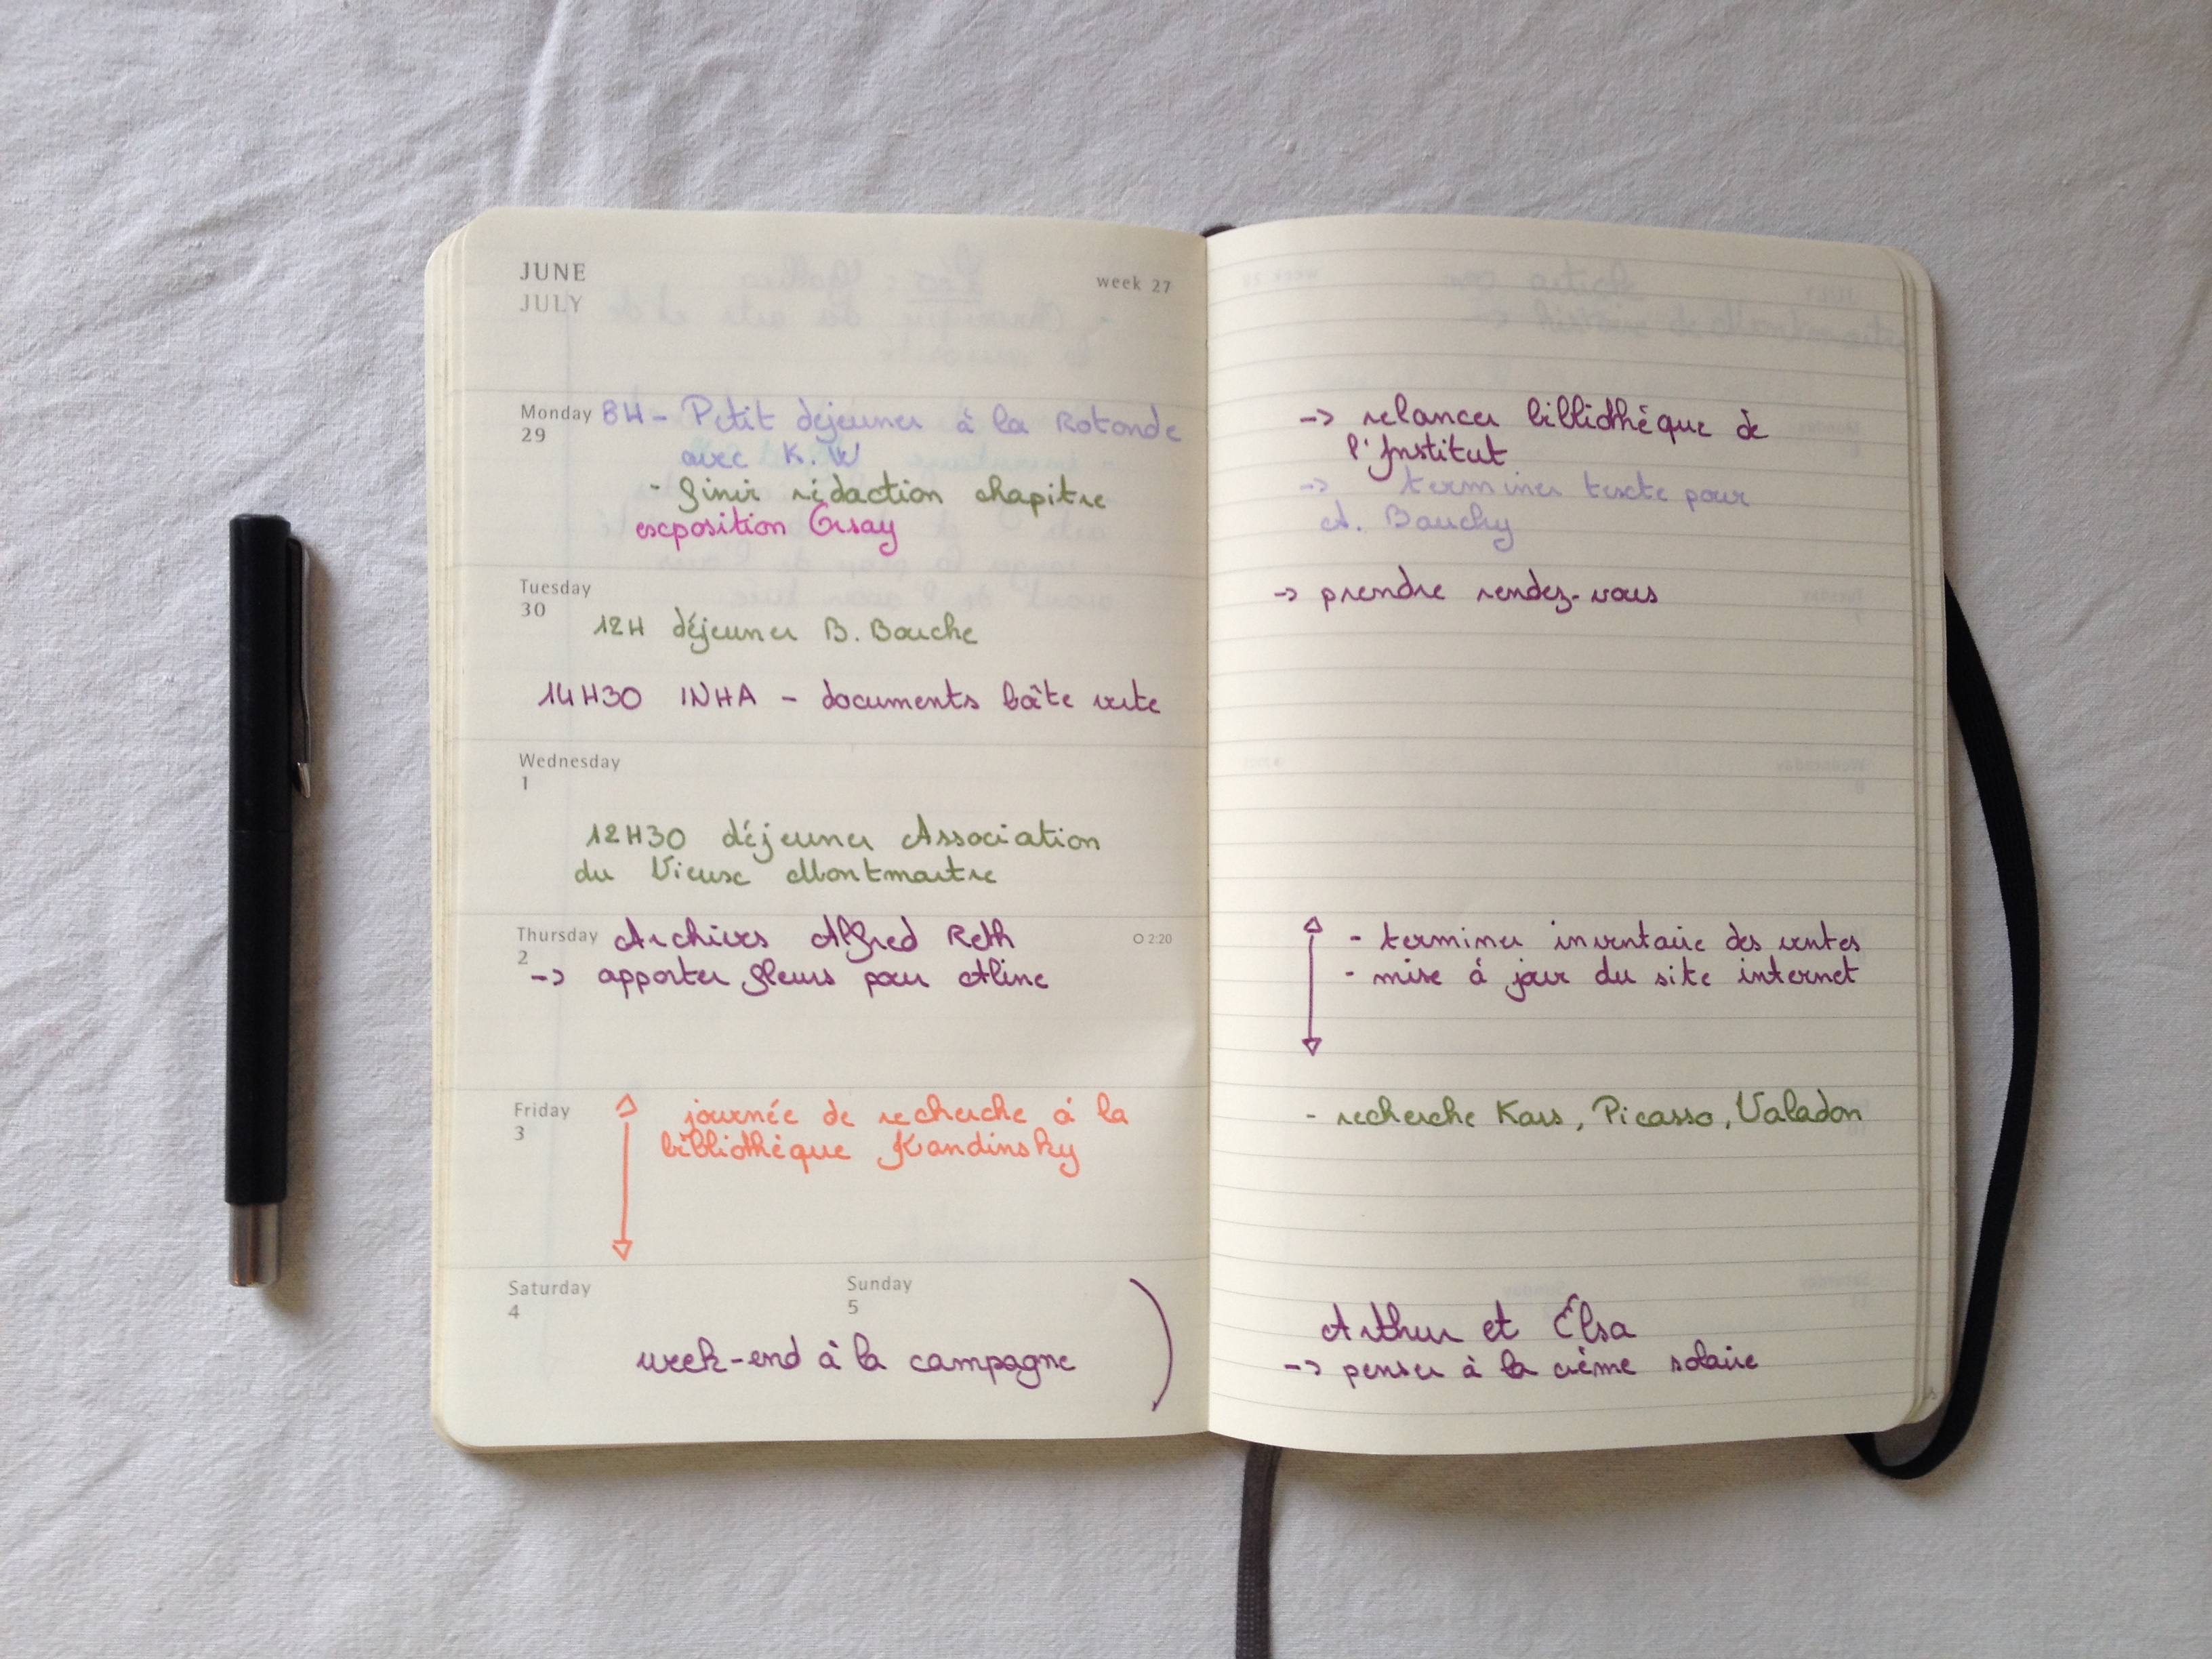 JUNE
JULY
week 27
Monday
29
8H - Petit dejeuner à la Rotonde
avec K. W
- finir rédaction chapitre
exposition Orsay
Tuesday
30
12H déjeuner B. Bouche
14H30 INHA - documents boîte verte
Wednesday
1
12H30 déjeuner Association
du Vieux Montmartre
Thursday
2
Archives Alfred Reth
O 2:20
-> apporter fleurs pour Aline
Friday
3
journée de recherche à la
bibliothèque Kandinsky
Saturday
4
Sunday
5
week-end à la campagne
-> relancer bibliothèque de
l'Institut
-> terminer texte pour
A. Bauchy
-> prendre rendez-vous
- terminer inventaire des ventes
- mise à jour du site internet
- recherche Kars, Picasso, Valadon
Arthur et Élsa
-> penser à la crème solaire